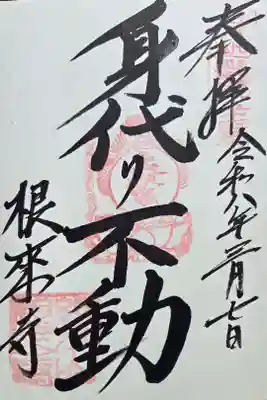 奉拝 令和八年三月七日
身代り不動
根来寺